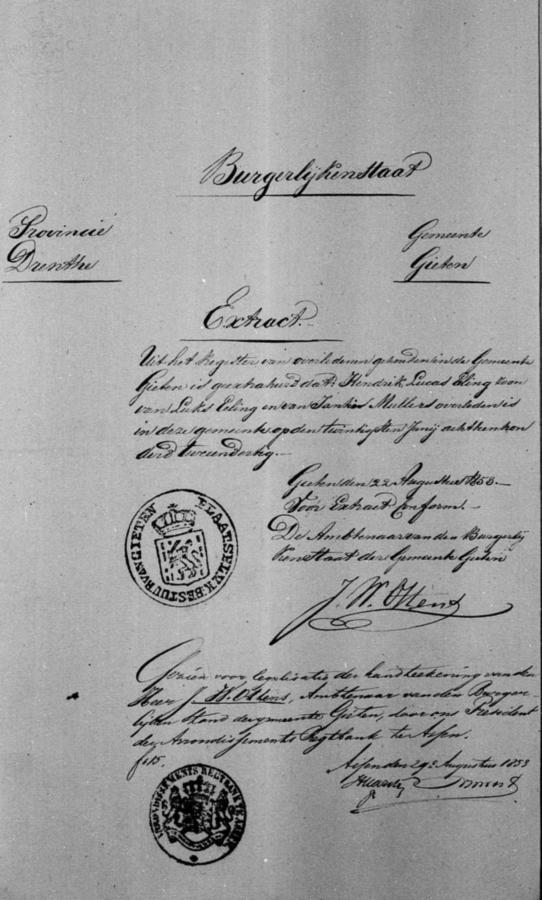 Burgerlijken staat
Provincie
Drenthe
Gemeente
Gieten
Extract.
Uit het Register van overledenen gehouden in de Gemeente
Gieten is geextraheerd dat Hendrik Lucas Eling zoon
van Luks Eeling en van Jantien Mulders overleden is
in deze gemeente op den twintigsten Junij achttienhon
derd twee en dertig.
Gieten den 22 Augustus 1853.
Voor Extract Conform
De Ambtenaar van den Burgerlij
ken Staat der Gemeente Gieten
J. W. Ottens
PLAATSELIJK BESTUUR VAN GIETEN
Gezien voor legalisatie der handteekening van den
Heer J. W. Ottens, Ambtenaar van den Burger-
lijken Stand der gemeente Gieten, door ons President
der Arrondissements Regtbank te Assen.
Assen den 29 Augustus 1853
ARRONDISSEMENTS REGTBANK TE ASSEN